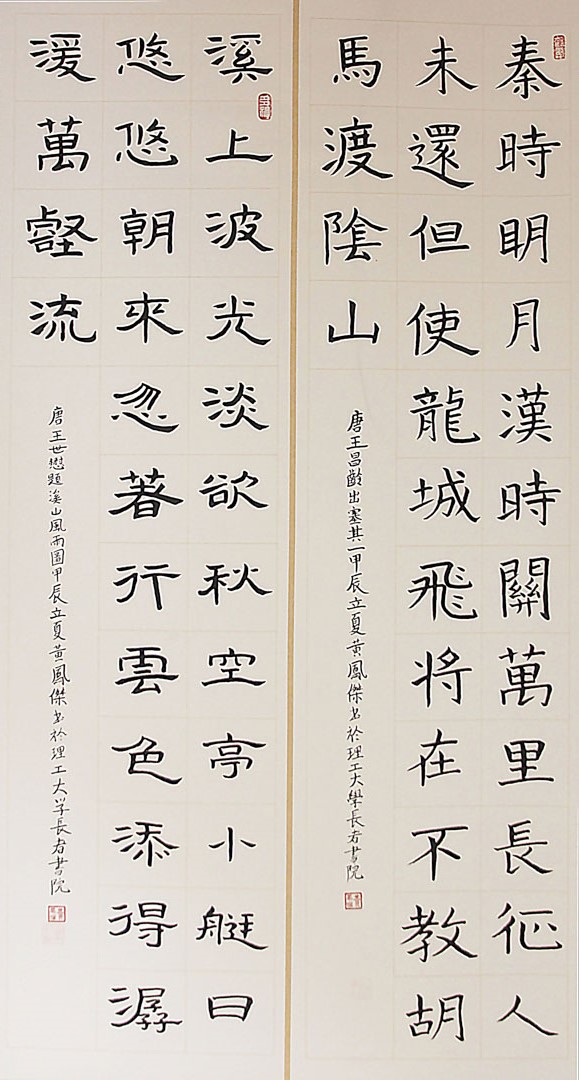 秦時明月漢時關萬里長征人
未還但使龍城飛将在不教胡
馬渡陰山
唐王昌齡出塞其一甲辰立夏黃鳳傑书於理工大學長者書院
溪上波光淡欲秋空亭小艇日
悠悠朝來忽著行雲色添得潺
湲萬壑流
唐王世懋題溪山風雨圖甲辰立夏黃鳳傑书於理工大学長者書院